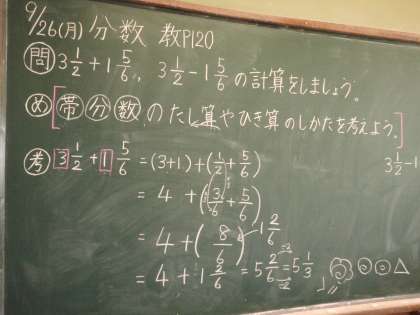 9/26(月) 分数 教P120
問 3 1/2 + 1 5/6, 3 1/2 - 1 5/6 の計算をしましょう。
め 帯分数のたし算やひき算のしかたを考えよう。
考 3 1/2 + 1 5/6 = (3+1) + (1/2 + 5/6)
3 1/2 - 1
= 4 + (3/6 + 5/6)
= 4 + (8/6) 1 2/6
= 4 + 1 2/6 = 5 2/6 = 5 1/3